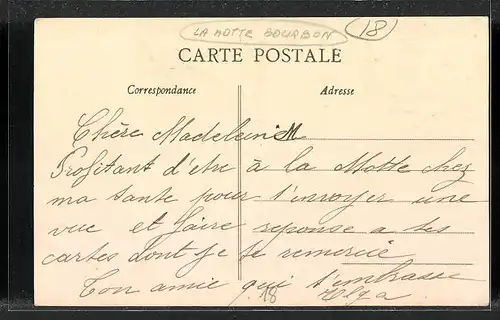 LA MOTTE BOURBON
18
CARTE POSTALE
Correspondance
Adresse
Chère Madeleine
Profitant d'etre à la Motte chez
ma tante pour t'envoyer une
vue et faire reponse a tes
cartes dont je te remercie
Ton amie qui t'embrasse
18
Olga